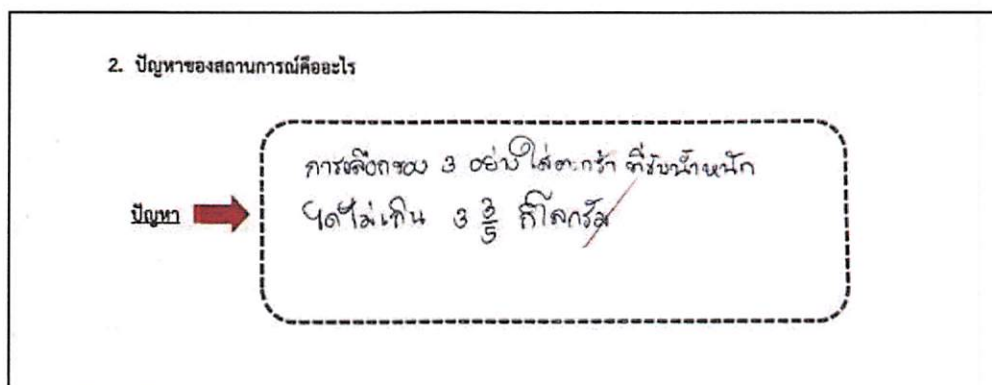 2. ปัญหาของสถานการณ์คืออะไร
การเลือกของ 3 อย่างใส่ตะกร้า ที่รับน้ำหนัก
ปัญหา
ได้ไม่เกิน 3 3/5 กิโลกรัม